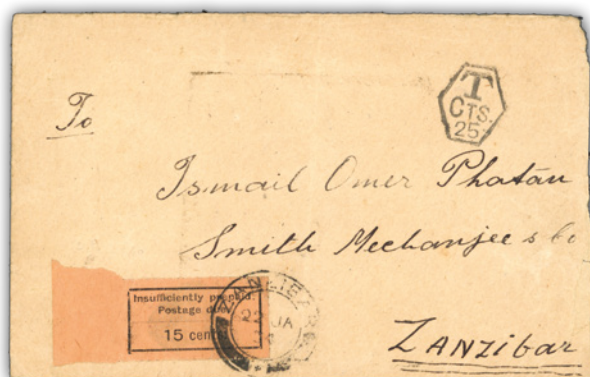 T
CTS.
25
To
Ismail Omer Phatan
Smith Mechanjee & Co
Insufficiently prepaid.
Postage due.
15 cents
ZANZIBAR
22 JA
ZANZIBAR